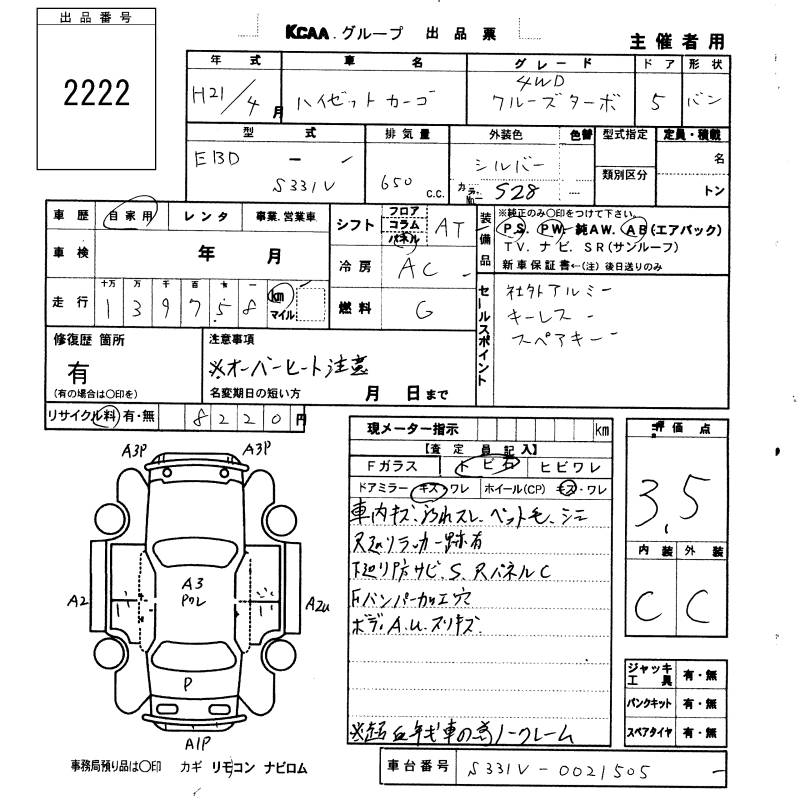 出品番号
2222
KCAA.グループ 出品票
主催者用
年式 車名 グレード ドア 形状
H21/4月 ハイゼットカーゴ 4WD クルーズターボ 5 バン
型式 排気量 外装色 色替 型式指定 定員・積載
EBD - - S331V 650 c.c. シルバー カラーNo. S28 類別区分 名 トン
車歴 自家用 レンタ 事業.営業車
車検 年 月
走行 十万 万 千 百 十 一
139758 km マイル
シフト フロア コラム パネル AT
冷房 AC -
燃料 G
装備品
※純正のみ〇印をつけて下さい。
PS. PW. 純AW. AB(エアバック)
TV. ナビ. SR(サンルーフ)
新車保証書←(注)後日送りのみ
セールスポイント
社外アルミー
キーレス -
スペアキー
修復歴 箇所
有
(有の場合は〇印を)
注意事項
※オーバーヒート注意
名変期日の短い方 月 日まで
リサイクル料 有・無 8220円
現メーター指示 km
【査定員記入】
Fガラス トビ石 ヒビワレ
ドアミラー キズ・ワレ ホイール(CP) キズ・ワレ
車内キズ、汚れスレ、ペット毛、シミ
下廻り防サビ、S、RパネルC
FバンパーカケE穴
ボディA.U.スリキズ
ノークレーム
評価点
3.5
内装 外装
C C
ジャッキ工具 有・無
パンクキット 有・無
スペアタイヤ 有・無
A3P A3P
A2 A3 Pワレ A2U
P
A1P
事務局預り品は〇印 カギ リモコン ナビロム
車台番号 S331V-0021505 -